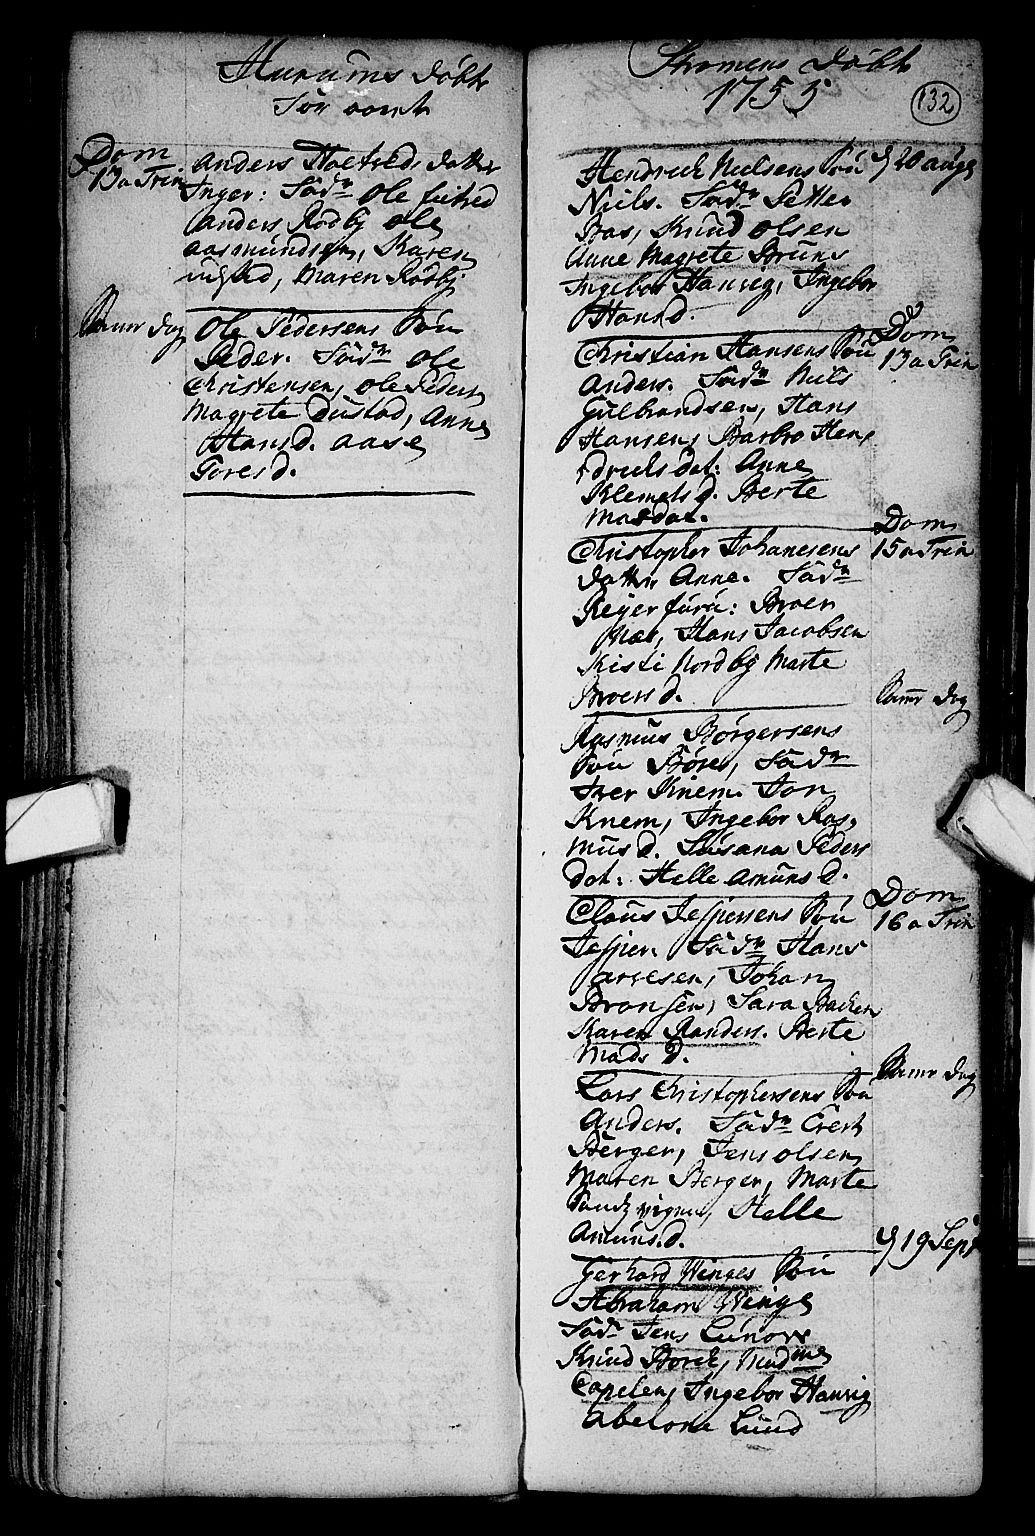 Hurums Døbt
Dom
13 a Trin
Anders Datter
Inger: Fadr Ole
Anders Rødby Ole
Aasmundsen, Karen
Maren Rødby
Samr Dag
Ole Pedersens Søn
Peder. Fadr Ole
Christensen, Ole Peders
Magrete Anne
Hansd. Aase
Toresd.
Strømens Døbt
1755
132
Hendrich Nielsens Søn
Niels. Fadr Petter
Bas, Knud Olsen
Anne Magrete Bruns
Ingebor Hansd.
d 20 aug
Christian Hansens Søn
Anders. Fadr Niels
Gulbrandsen, Hans
Hansen, Barbro Hen
drichsdat: Anne
Klemetsd. Berte
Dom
13 a Trin
Christopher Johanesens
Datter Anne. Fadr
Rejer Furu: Broer
Næs, Hans Jacobsen
Kisti Nordby Marte
Broersd.
Dom
15 a Trin
Rasmus Børgersens
Søn Børre, Fadr
Iver Knem. Jon
Knem, Ingebor Ras
musd. Susana Peders
dot: Helle Amunsd.
Samr Dag
Claus Jespersens Søn
Jesper. Fadr Hans
Johan
Bronsen, Sara Backen
Karen Randers. Berte
Madsd.
Dom
16 a Trin
Lars Christophersens Søn
Anders. Fadr Evert
Berger, Jens Olsen
Maren Berger, Marte
Helle
Amunsd.
Samr Dag
Gerhard Winges Søn
Abraham Winge
Fadr Jens Lunow
Knud Borck, Madme
Capelen, Ingebor
Abelona Lund
d 19 Sept